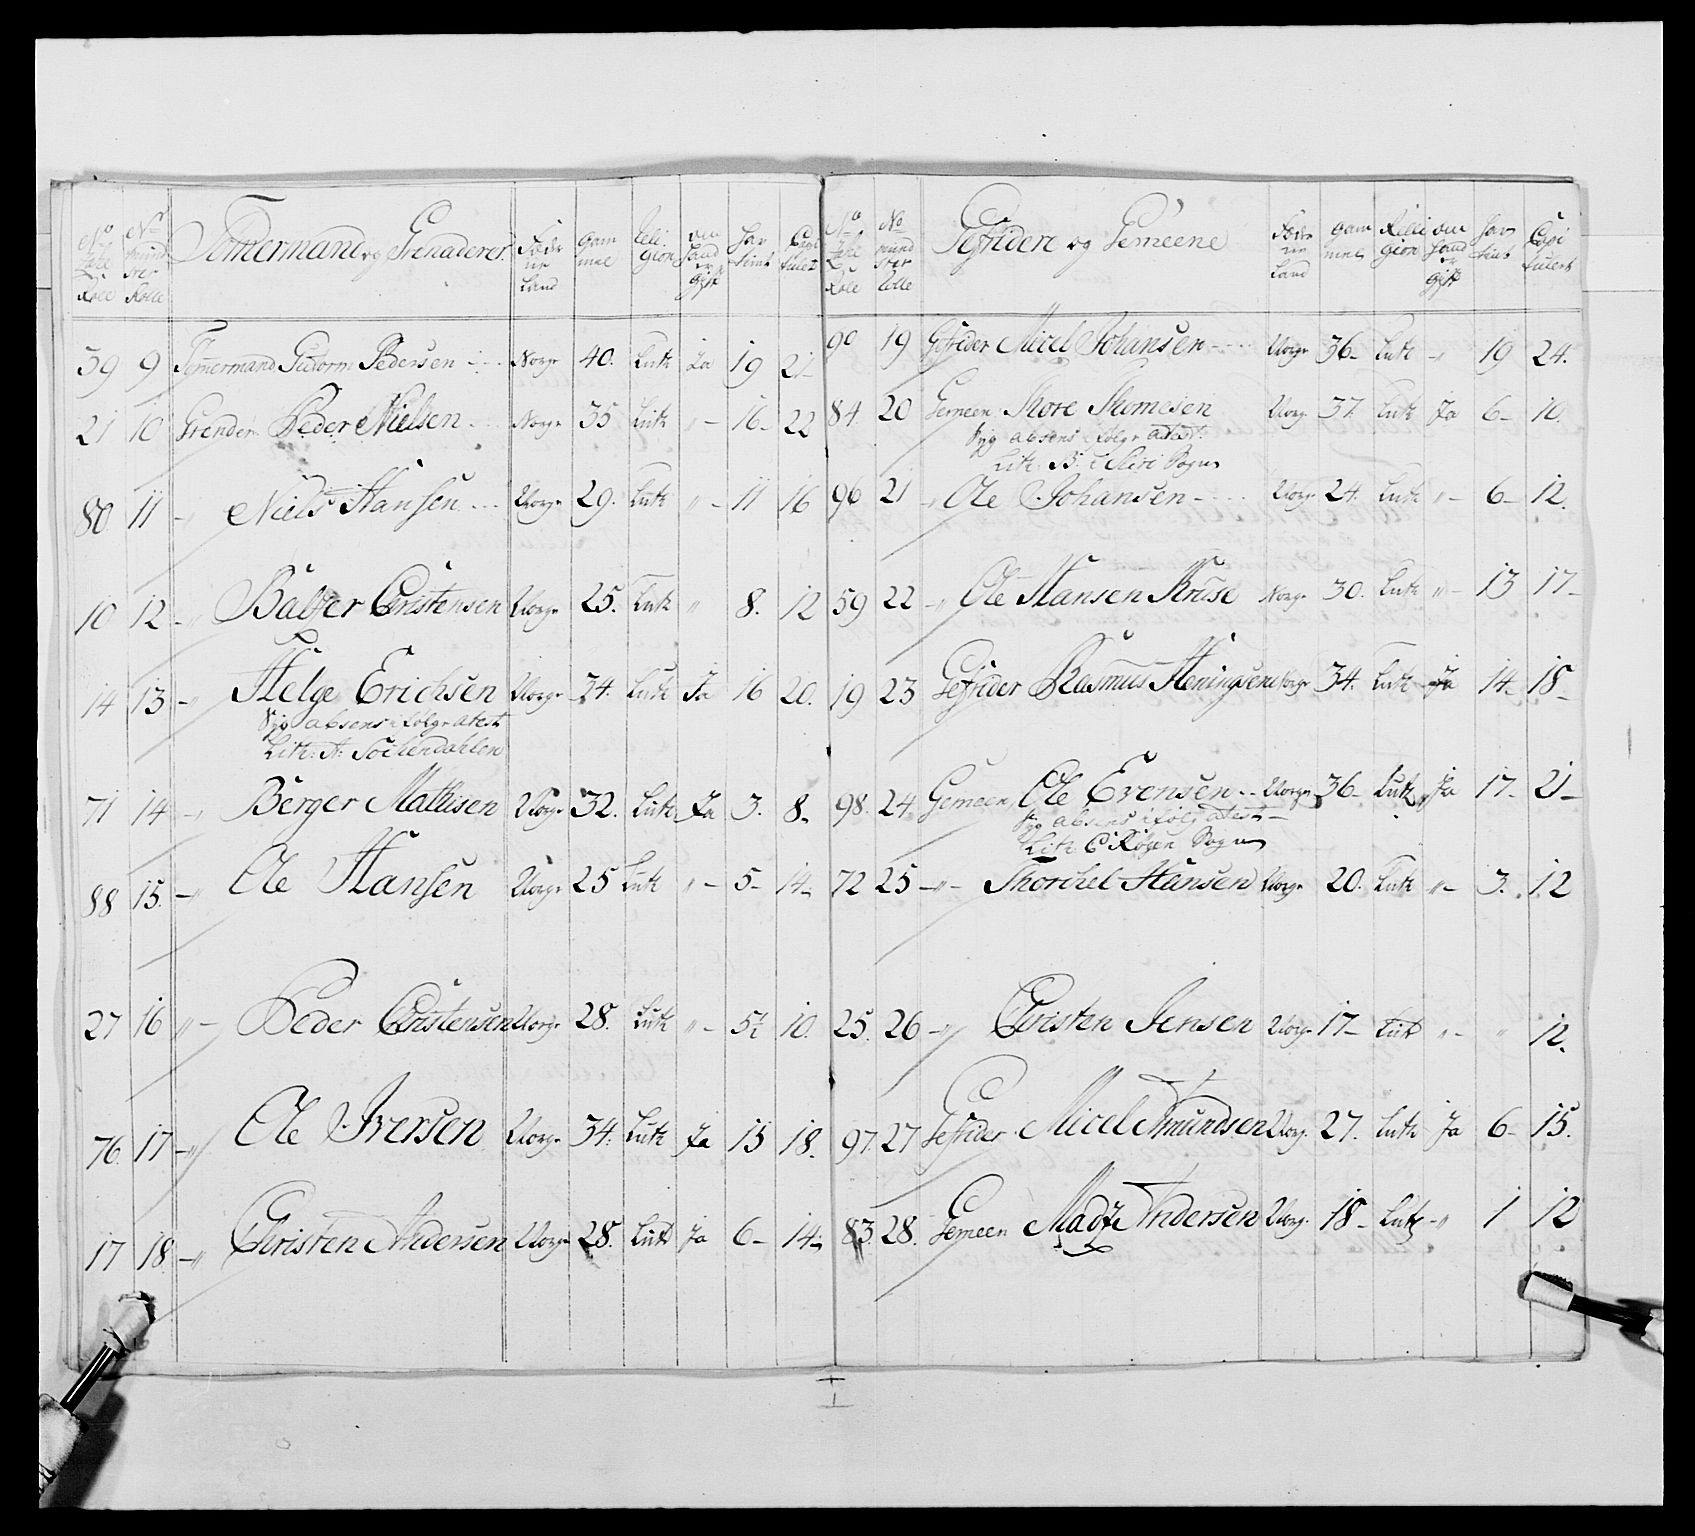 Tømermand og Grenaderer
Føde ne Land
Gam mel
Reli gion
om Hand er Gift
Har tient
Capi tulert
39 9 Tømermand Gudorm Pedersen Norge 40. Luth Ja 19 21
21 10 Grender Peder Nielsen Norge 35 Luth " 16 22
80 11 " Niels Hansen Norge 29. Luth " 11 16
10 12 " Balzer Christensen Norge 25. Luth " 8. 12
14 13 " Helge Erichsen Norge 34. Luth Ja 16 20.
Syg absens i følge atest
Lith: A: Sochendahlen
71 14 " Berger Mathisen Norge 32. Luth Ja 3. 8
88 15. " Ole Hansen Norge 25 Luth " 5 14
27 16 " Peder Christensen Norge 28. Luth " 5½ 10.
76. 17 " Ole Iversen Norge 34. Luth Ja 15 18.
17 18 " Christen Andersen Norge 28. Luth Ja 6 14
Gefridere og Gemeene
Føde ne Land
Gam mel
Relli gion
om Hand er Gift
Har tient
Capi tulert
90 19 Gefrider Micel Johansen Norge 36 Luth " 19 24.
84 20 Gemeen Thore Thomesen Norge 37. Luth Ja 6 10.
Syg absens i følge atest.
Lith: B: i Sogn
96 21 " Ole Johansen Norge 24. Luth " 6 12.
59 22 " Ole Hansen Kruse Norge 30. Luth " 13 17
19 23 Gefrider Rasmus Heningsen Norge 34. Luth Ja 14 18
98. 24 Gemeen Ole Evensen Norge 36 Luth Ja 17 21
Syg absens i følg atest
Lith C Røgen Sogn
72 25 " Thorchel Hansen Norge 20. Luth " 3. 12
25. 26 " Christen Jensen Norge 17 Luth " " 12.
97. 27 Gefrider Micel Amundsen Norge 27. Luth Ja 6 15.
83. 28. Gemeen Madz Andersen Norge 18 Luth " 1 12